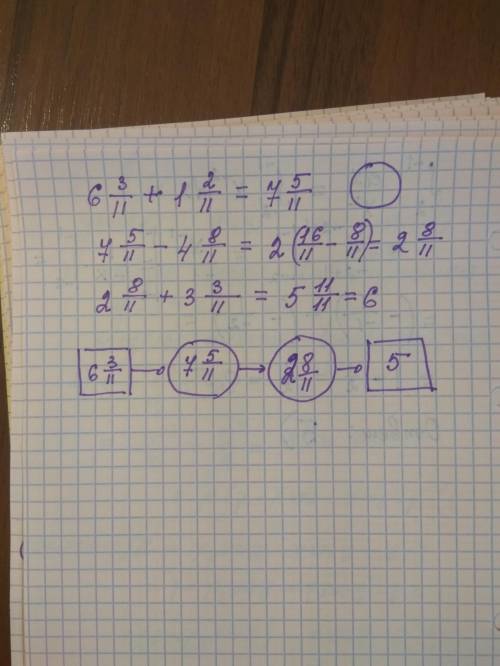 6 3/11 + 1 2/11 = 7 5/11
7 5/11 - 4 8/11 = 2 (16/11 - 8/11) = 2 8/11
2 8/11 + 3 3/11 = 5 11/11 = 6
6 3/11 7 5/11 2 8/11 5